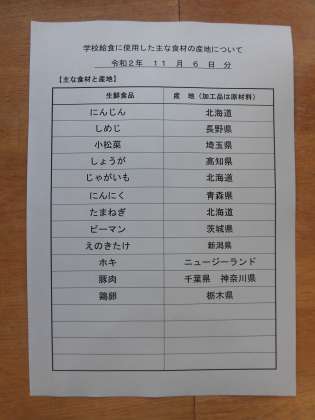 学校給食に使用した主な食材の産地について
令和2年 11 月 6 日 分
【主な食材と産地】
生鮮食品 産 地（加工品は原材料）
にんじん 北海道
しめじ 長野県
小松菜 埼玉県
しょうが 高知県
じゃがいも 北海道
にんにく 青森県
たまねぎ 北海道
ピーマン 茨城県
えのきたけ 新潟県
ホキ ニュージーランド
豚肉 千葉県 神奈川県
鶏卵 栃木県